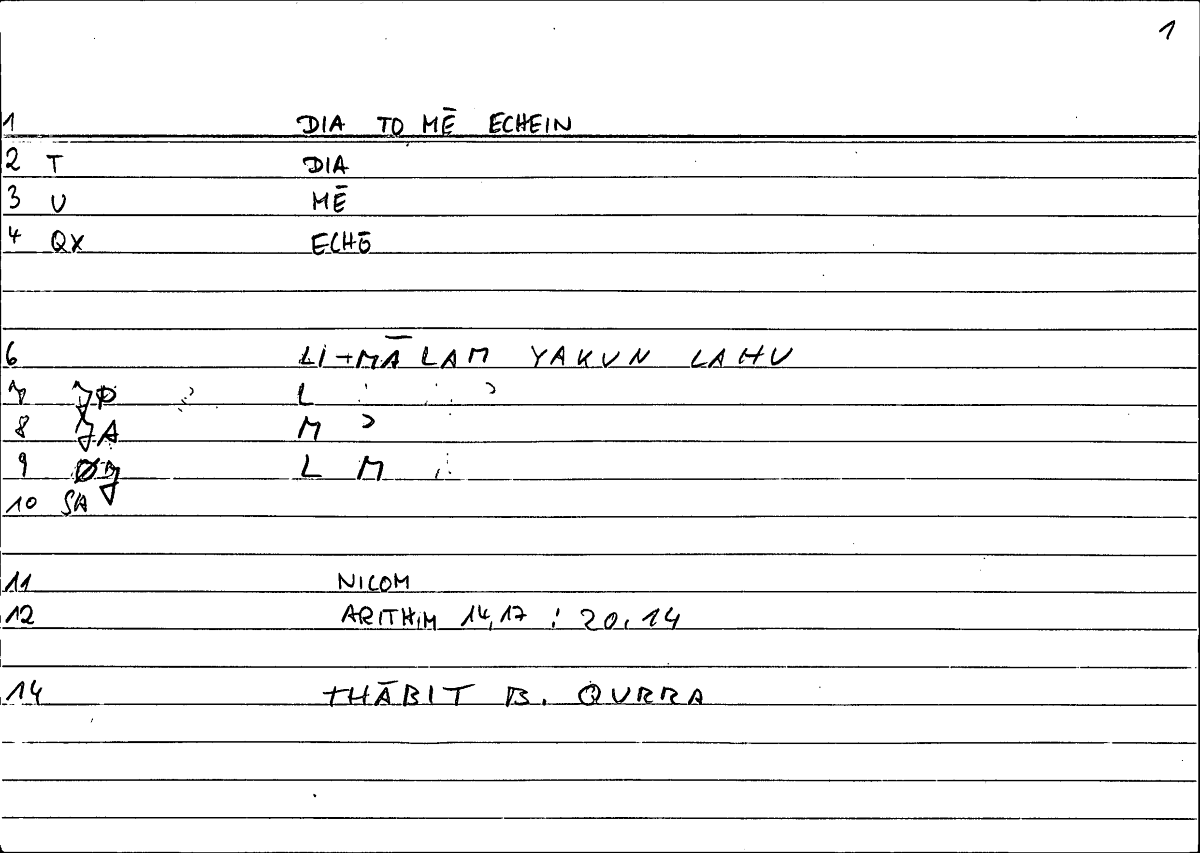 1
1 DIA TO MĒ ECHEIN
2 T DIA
3 U MĒ
4 QX ECHŌ
6 LI-MĀ LAM YAKUN LAHU
7 L
8 JA M
9 L M
10 SA
11 NICOM
12 ARITHM 14,17 : 20,14
14 THĀBIT B. QURRA